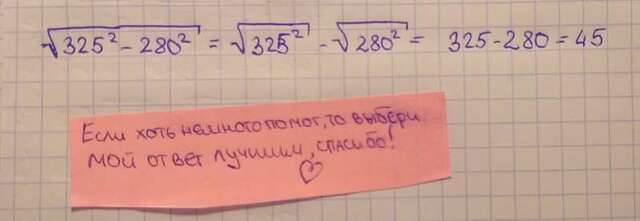 √325² - 280² = √325² - √280² = 325 - 280 = 45
Если хоть немного помог, то выбери
мой ответ лучшим, спасибо!